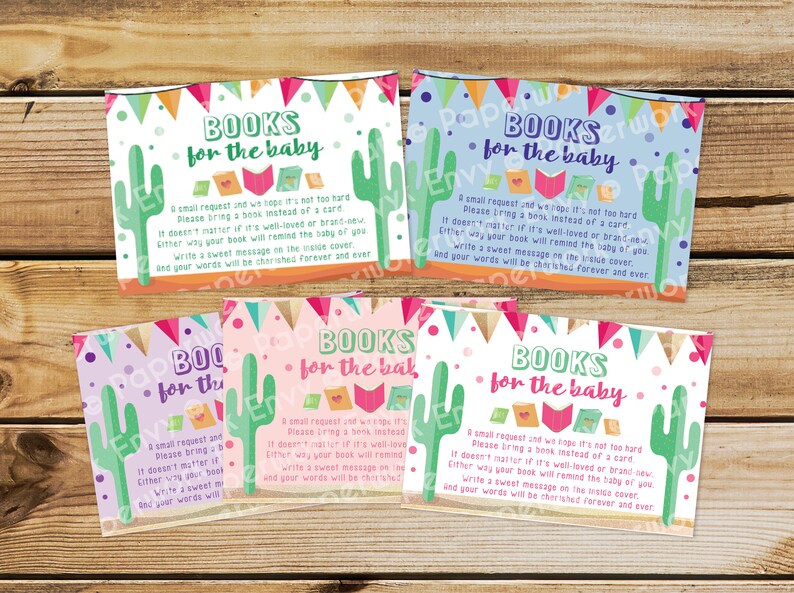 BOOKS
for the baby
A small request and we hope it's not too hard
Please bring a book instead of a card.
It doesn't matter if it's well-loved or brand-new,
Either way your book will remind the baby of you.
Write a sweet message on the inside cover,
And your words will be cherished forever and ever.
BOOKS
for the baby
A small request and we hope it's not too hard
Please bring a book instead of a card.
It doesn't matter if it's well-loved or brand-new,
Either way your book will remind the baby of you.
Write a sweet message on the inside cover,
And your words will be cherished forever and ever.
for
A small
Please
It doesn't matter if
Either way your
Write a sweet
And your words will
BOOKS
for the
A small request and we hope it's
Please bring a book instead
It doesn't matter if it's
Either way your book will
Write a sweet message on the
And your words will be
BOOKS
for the baby
A small request and we hope it's not too hard
Please bring a book instead of a card.
It doesn't matter if it's well-loved or brand-new,
Either way your book will remind the baby of you.
Write a sweet message on the inside cover,
And your words will be cherished forever and ever.
© Paperwork Envy